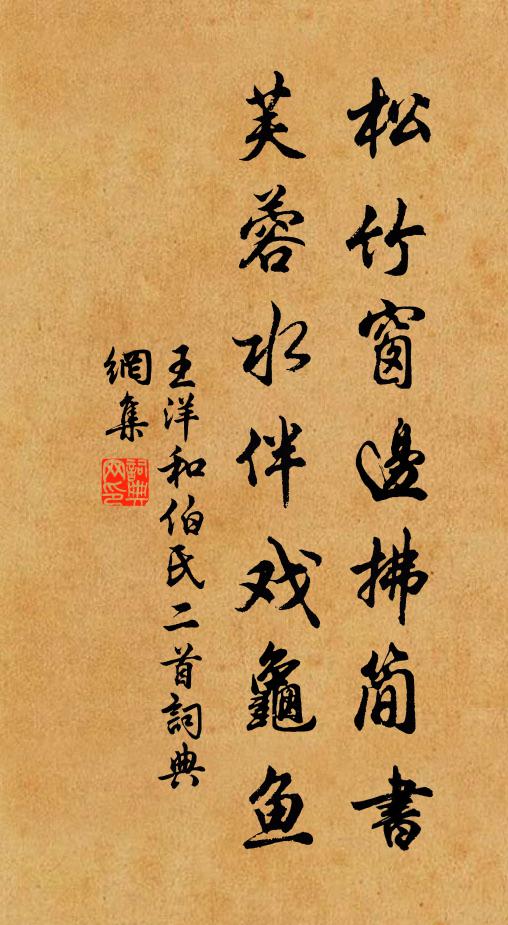 松竹窗邊拂简書
芙蓉水伴戏龜鱼
王洋和伯氏二首詞典
網集
詞典
网印